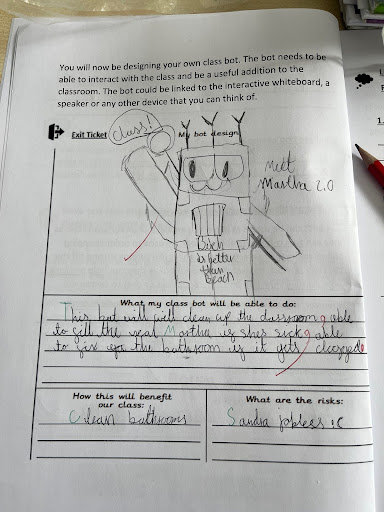 You will now be designing your own class bot. The bot needs to be
able to interact with the class and be a useful addition to the
classroom. The bot could be linked to the interactive whiteboard, a
speaker or any other device that you can think of.
Exit Ticket
Class!
My bot design
Meet
Martha 2.0
is better
than
beach
What my class bot will be able to do:
This bot will will clean up the classroom, able
to fill the real Martha if shes sick, able
to fix up the bathroom if it gets clogged
How this will benefit
our class:
Clean bathrooms
What are the risks:
Sandra jobless :C
1.